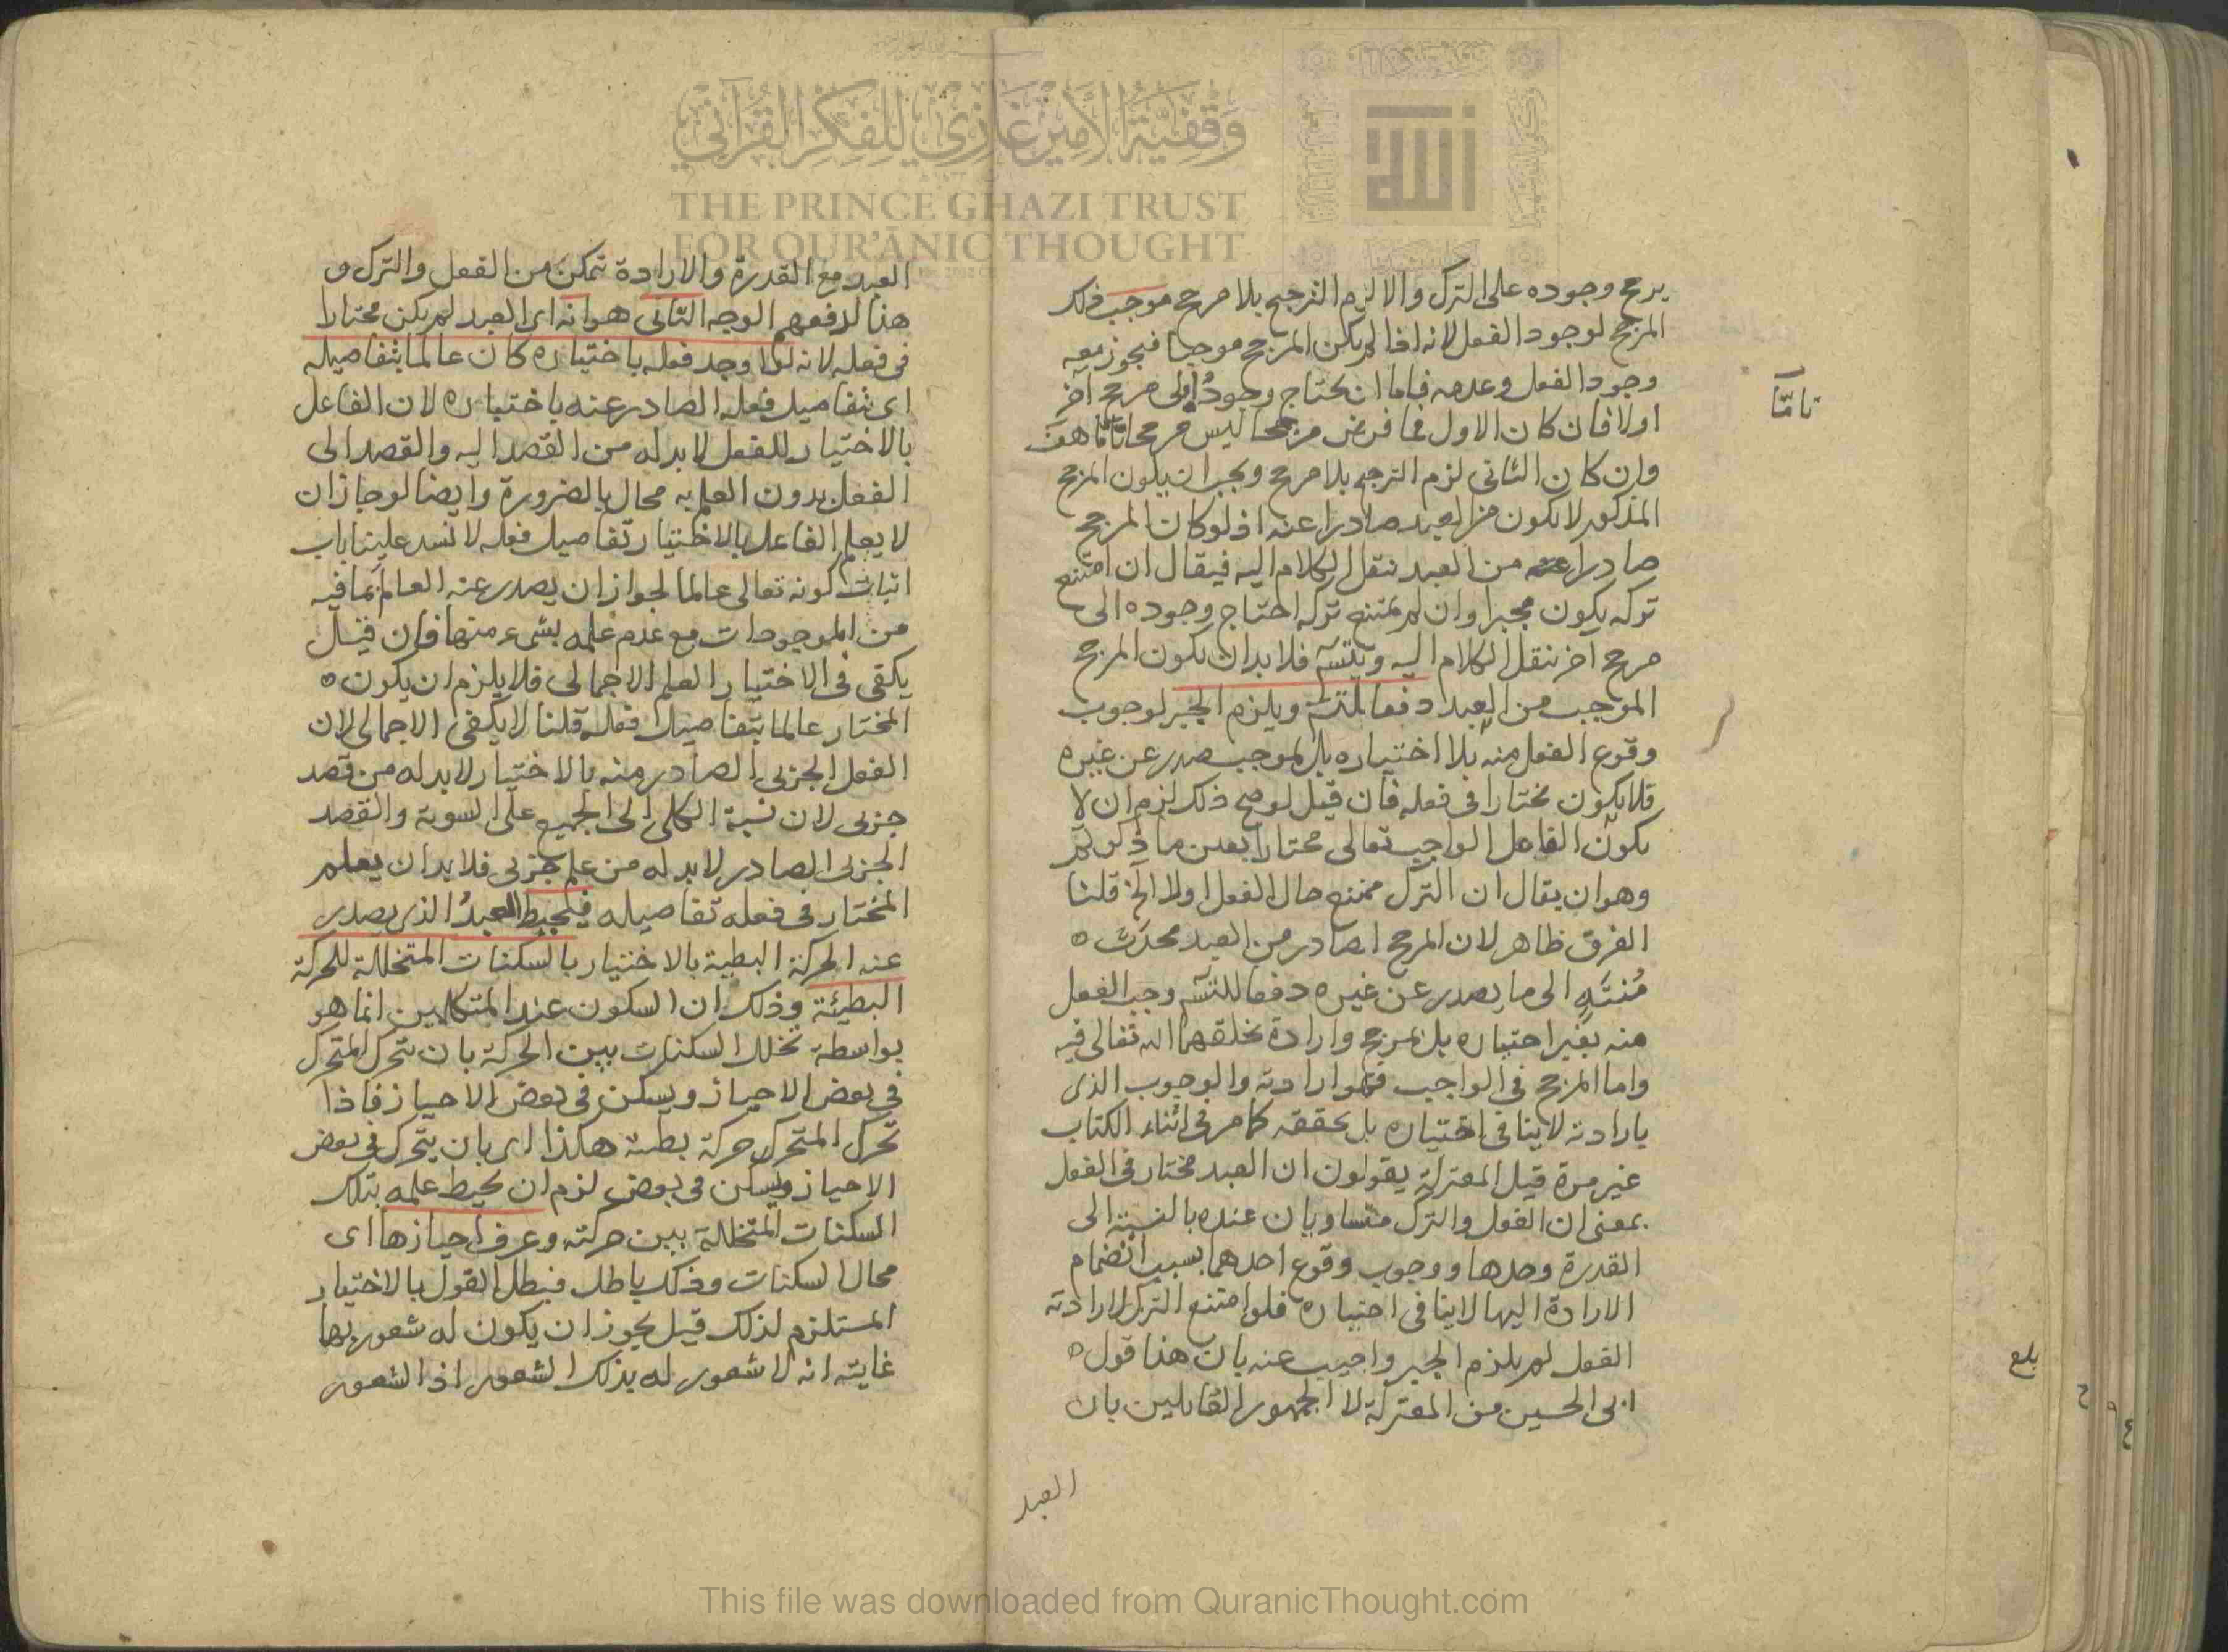 وقفية الأمير غازي للفكر القرآني
THE PRINCE GHAZI TRUST
FOR QUR'ĀNIC THOUGHT
الله
يرجح وجوده على الترك والا لزم الترجيح بلا مرجح موجب ذلك
المرجح لوجود الفعل لانه اذا لم يكن المرجح موجبا فيجوز معه
وجود الفعل وعدمه فاما ان يحتاج وجوده الى مرجح آخر
اولا فان كان الاول فما فرض مرجحا ليس مرجحا تاما هف
تامّا
وان كان الثاني لزم الترجيح بلا مرجح ويجب ان يكون المرجح
المذكور لا يكون من العبد صادرا عنه اذ لو كان المرجح
صادرا عنه من العبد ننقل الكلام اليه فيقال ان امتنع
تركه يكون مجبرا وان لم يمتنع تركه احتاج وجوده الى
مرجح آخر ننقل الكلام اليه ويتسلسل فلا بد ان يكون المرجح
الموجب من العبد دفعا للتسلسل ويلزم الجبر لوجوب
وقوع الفعل منه بلا اختياره بل لموجب صدر عن غيره
فلا يكون مختارا في فعله فان قيل لو صح ذلك لزم ان لا
يكون الفاعل الواجب تعالى مختارا بعين ما ذكرتم
وهو ان يقال ان الترك ممتنع حال الفعل اولا الخ قلنا
الفرق ظاهر لان المرجح الصادر من العبد محدث ٥
مُنتَهٍ الى ما يصدر عن غيره دفعا للتسلسل وجب الفعل
منه بغير اختياره بل بمرجح وارادة يخلقهما الله تعالى فيه
واما المرجح في الواجب فهو ارادته والوجوب الذي
بارادته لا ينافي اختياره بل يحققه كما مر في اثناء الكتاب
غير مرة قيل المعتزلة يقولون ان العبد مختار في الفعل
بمعنى ان الفعل والترك متساويان عنده بالنسبة الى
القدرة وحدها ووجوب وقوع احدهما بسبب انضمام
الارادة اليها لا ينافي اختياره فلو امتنع الترك لارادته
الفعل لم يلزم الجبر واجيب عنه بان هذا قول ٥
بلغ
ابي الحسين من المعتزلة لا الجمهور القائلين بان
العبد
العبد مع القدرة والارادة تمكن من الفعل والترك و
هذا لدفعهم الوجه الثاني هو انه اي العبد لم يكن مختارا
في فعله لانه لو اوجد فعله باختياره كان عالما بتفاصيله
اي بتفاصيل فعله الصادر عنه باختياره لان الفاعل
بالاختيار للفعل لا بد له من القصد اليه والقصد الى
الفعل بدون العلم به محال بالضرورة وايضا لو جاز ان
لا يعلم الفاعل بالاختيار تفاصيل فعله لانسد علينا باب
اثبات كونه تعالى عالما لجواز ان يصدر عنه العالم بما فيه
من الموجودات مع عدم علمه بشيء منها فان قيل
يكفي في الاختيار العلم الاجمالي فلا يلزم ان يكون ٥
المختار عالما بتفاصيل فعله قلنا لا يكفي الاجمالي لان
الفعل الجزئي الصادر منه بالاختيار لا بد له من قصد
جزئي لان نسبة الكلي الى الجميع على السوية والقصد
الجزئي الصادر لا بد له من علم جزئي فلا بد ان يعلم
المختار في فعله تفاصيله فيحيط العبدُ الذي يصدر
عنه الحركة البطية بالاختيار بالسكنات المتخللة للحركة
البطيئة وذلك ان السكون عند المتكلمين انما هو
بواسطة تخلل السكنات بين الحركة بان تحرك المتحرك
في بعض الاحياز ويسكن في بعض الاحياز فاذا
تحرك المتحرك حركة بطئة هكذا اي بان يتحرك في بعض
الاحياز ويسكن في بعض لزم ان يحيط علمه بتلك
السكنات المتخللة بين حركته وعرف احيازها اي
محال السكنات وذلك باطل فبطل القول بالاختيار
المستلزم لذلك قيل يجوز ان يكون له شعور بها
غايته انه لا شعور له بذلك الشعور اذ الشعور
This file was downloaded from QuranicThought.com